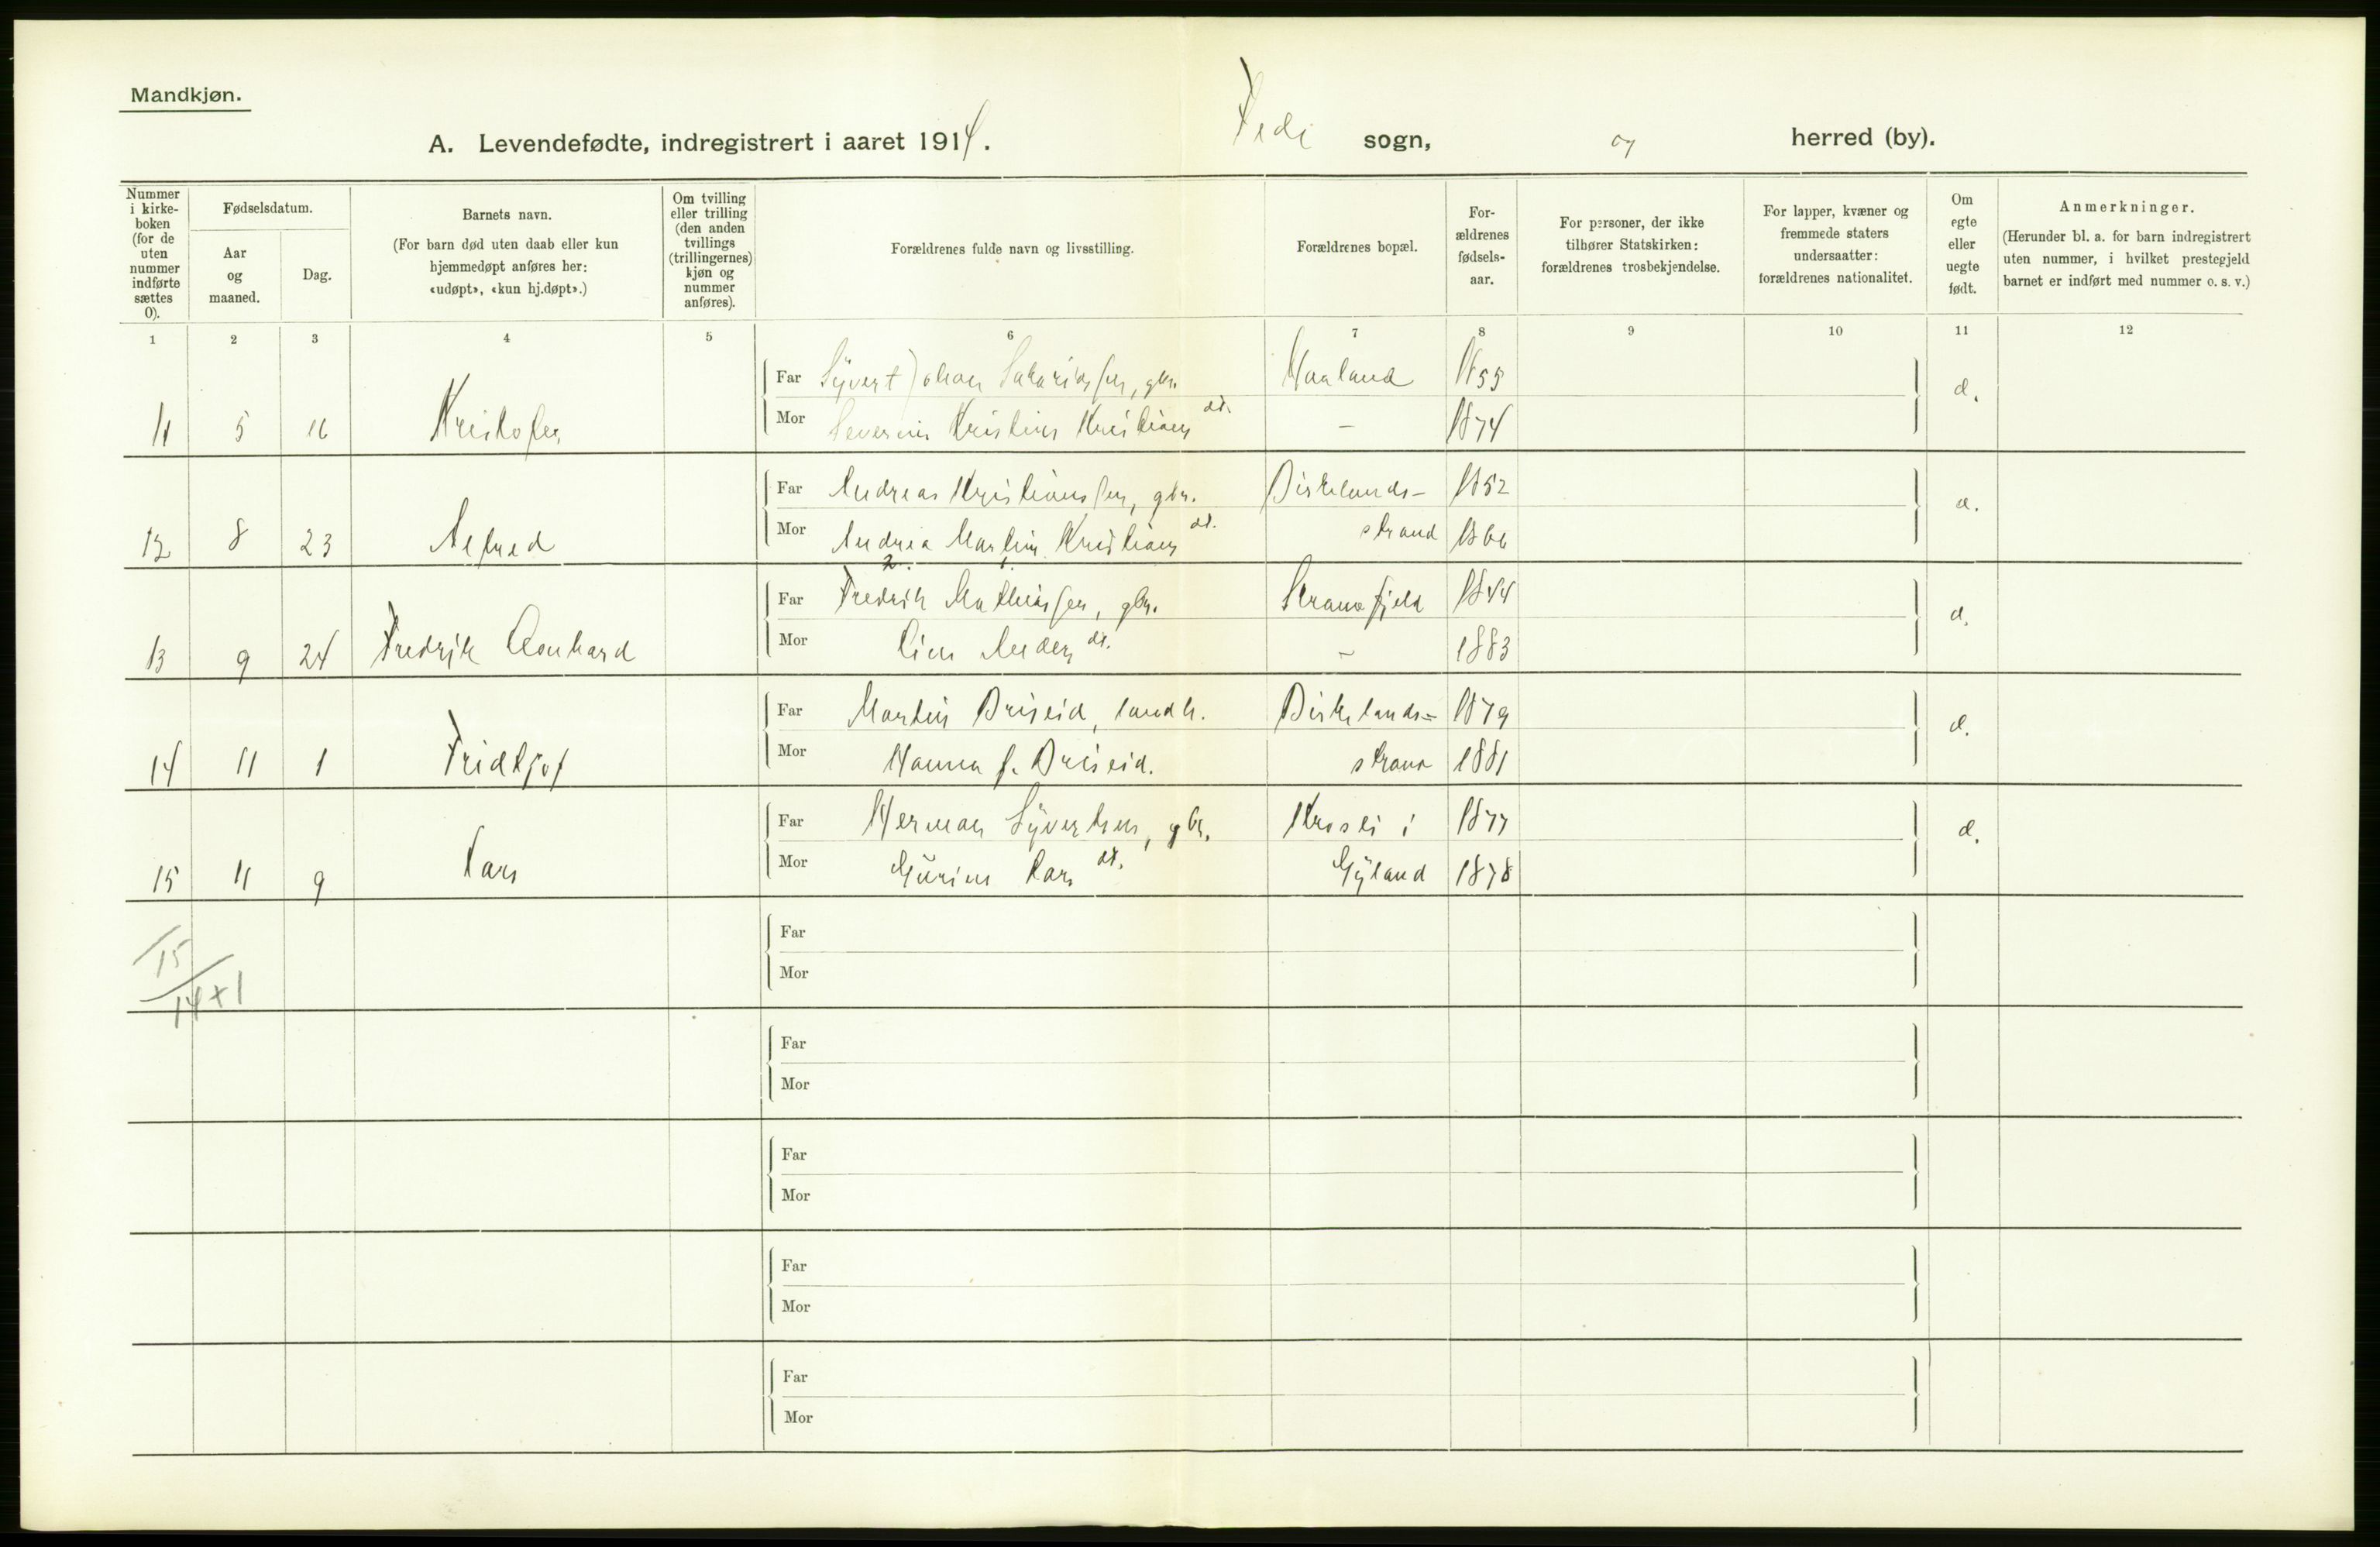 Mandkjøn.
A. Levendefødte, indregistrert i aaret 1914. Fede sogn, og herred (by).
Nummer i kirke-boken (for de uten nummer indførte sættes 0).
Fødselsdatum.
Aar og maaned.
Dag.
Barnets navn.
(For barn død uten daab eller kun hjemmedøpt anføres her: «udøpt», «kun hj.døpt».)
Om tvilling eller trilling (den anden tvillings (trillingernes) kjøn og nummer anføres).
Forældrenes fulde navn og livsstilling.
Forældrenes bopæl.
For-ældrenes fødsels-aar.
For personer, der ikke tilhører Statskirken: forældrenes trosbekjendelse.
For lapper, kvæner og fremmede staters undersaatter: forældrenes nationalitet.
Om egte eller uegte født.
Anmerkninger.
(Herunder bl. a. for barn indregistrert uten nummer, i hvilket prestegjeld barnet er indført med nummer o. s. v.)
1 2 3 4 5 6 7 8 9 10 11 12
Far Syvert Johan Sakariassen, gbr. Haaland 1855
11 5 16 Kristofer Mor Severine Kristine Kristians dt. – 1874
Far Andreas Kristiansen, gbr. Birkelands- 1852
12 8 23 Alfred Mor Andrea Martine Kristians dt. strand 1866
2. 1.
Far Fredrik Mathiassen, gbr. Stranefjeld 1844
13 9 24 Fredrik Leonhard Mor Line Anders dt. – 1883
Far Martin Briseid, landh. Birkelands- 1879
14 11 1 Fridtjof Mor Hanna f. Briseid. strand 1881
Far Herman Syvertsen, gbr. Krosli i 1877
15 11 9 Lars Mor Gurine Lars dt. Gyland 1878
15
14 + 1
Far
Mor
Far
Mor
Far
Mor
Far
Mor
Far
Mor